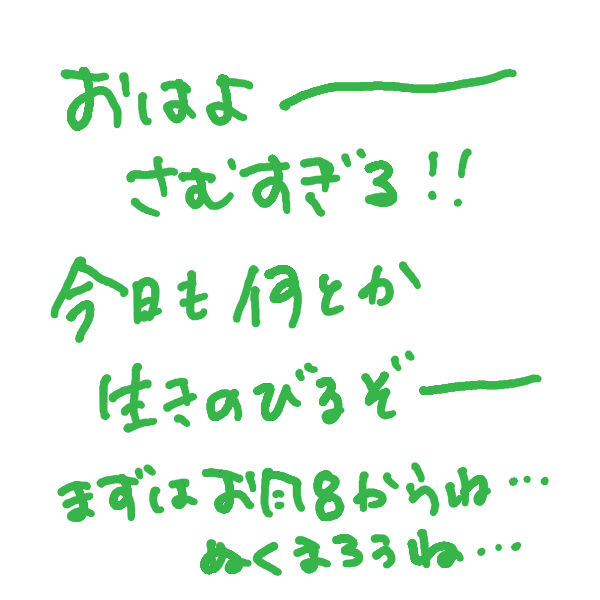 おはよー
さむすぎる!!
今日も何とか
生きのびるぞー
まずはお風呂からね…
ぬくまろうね…